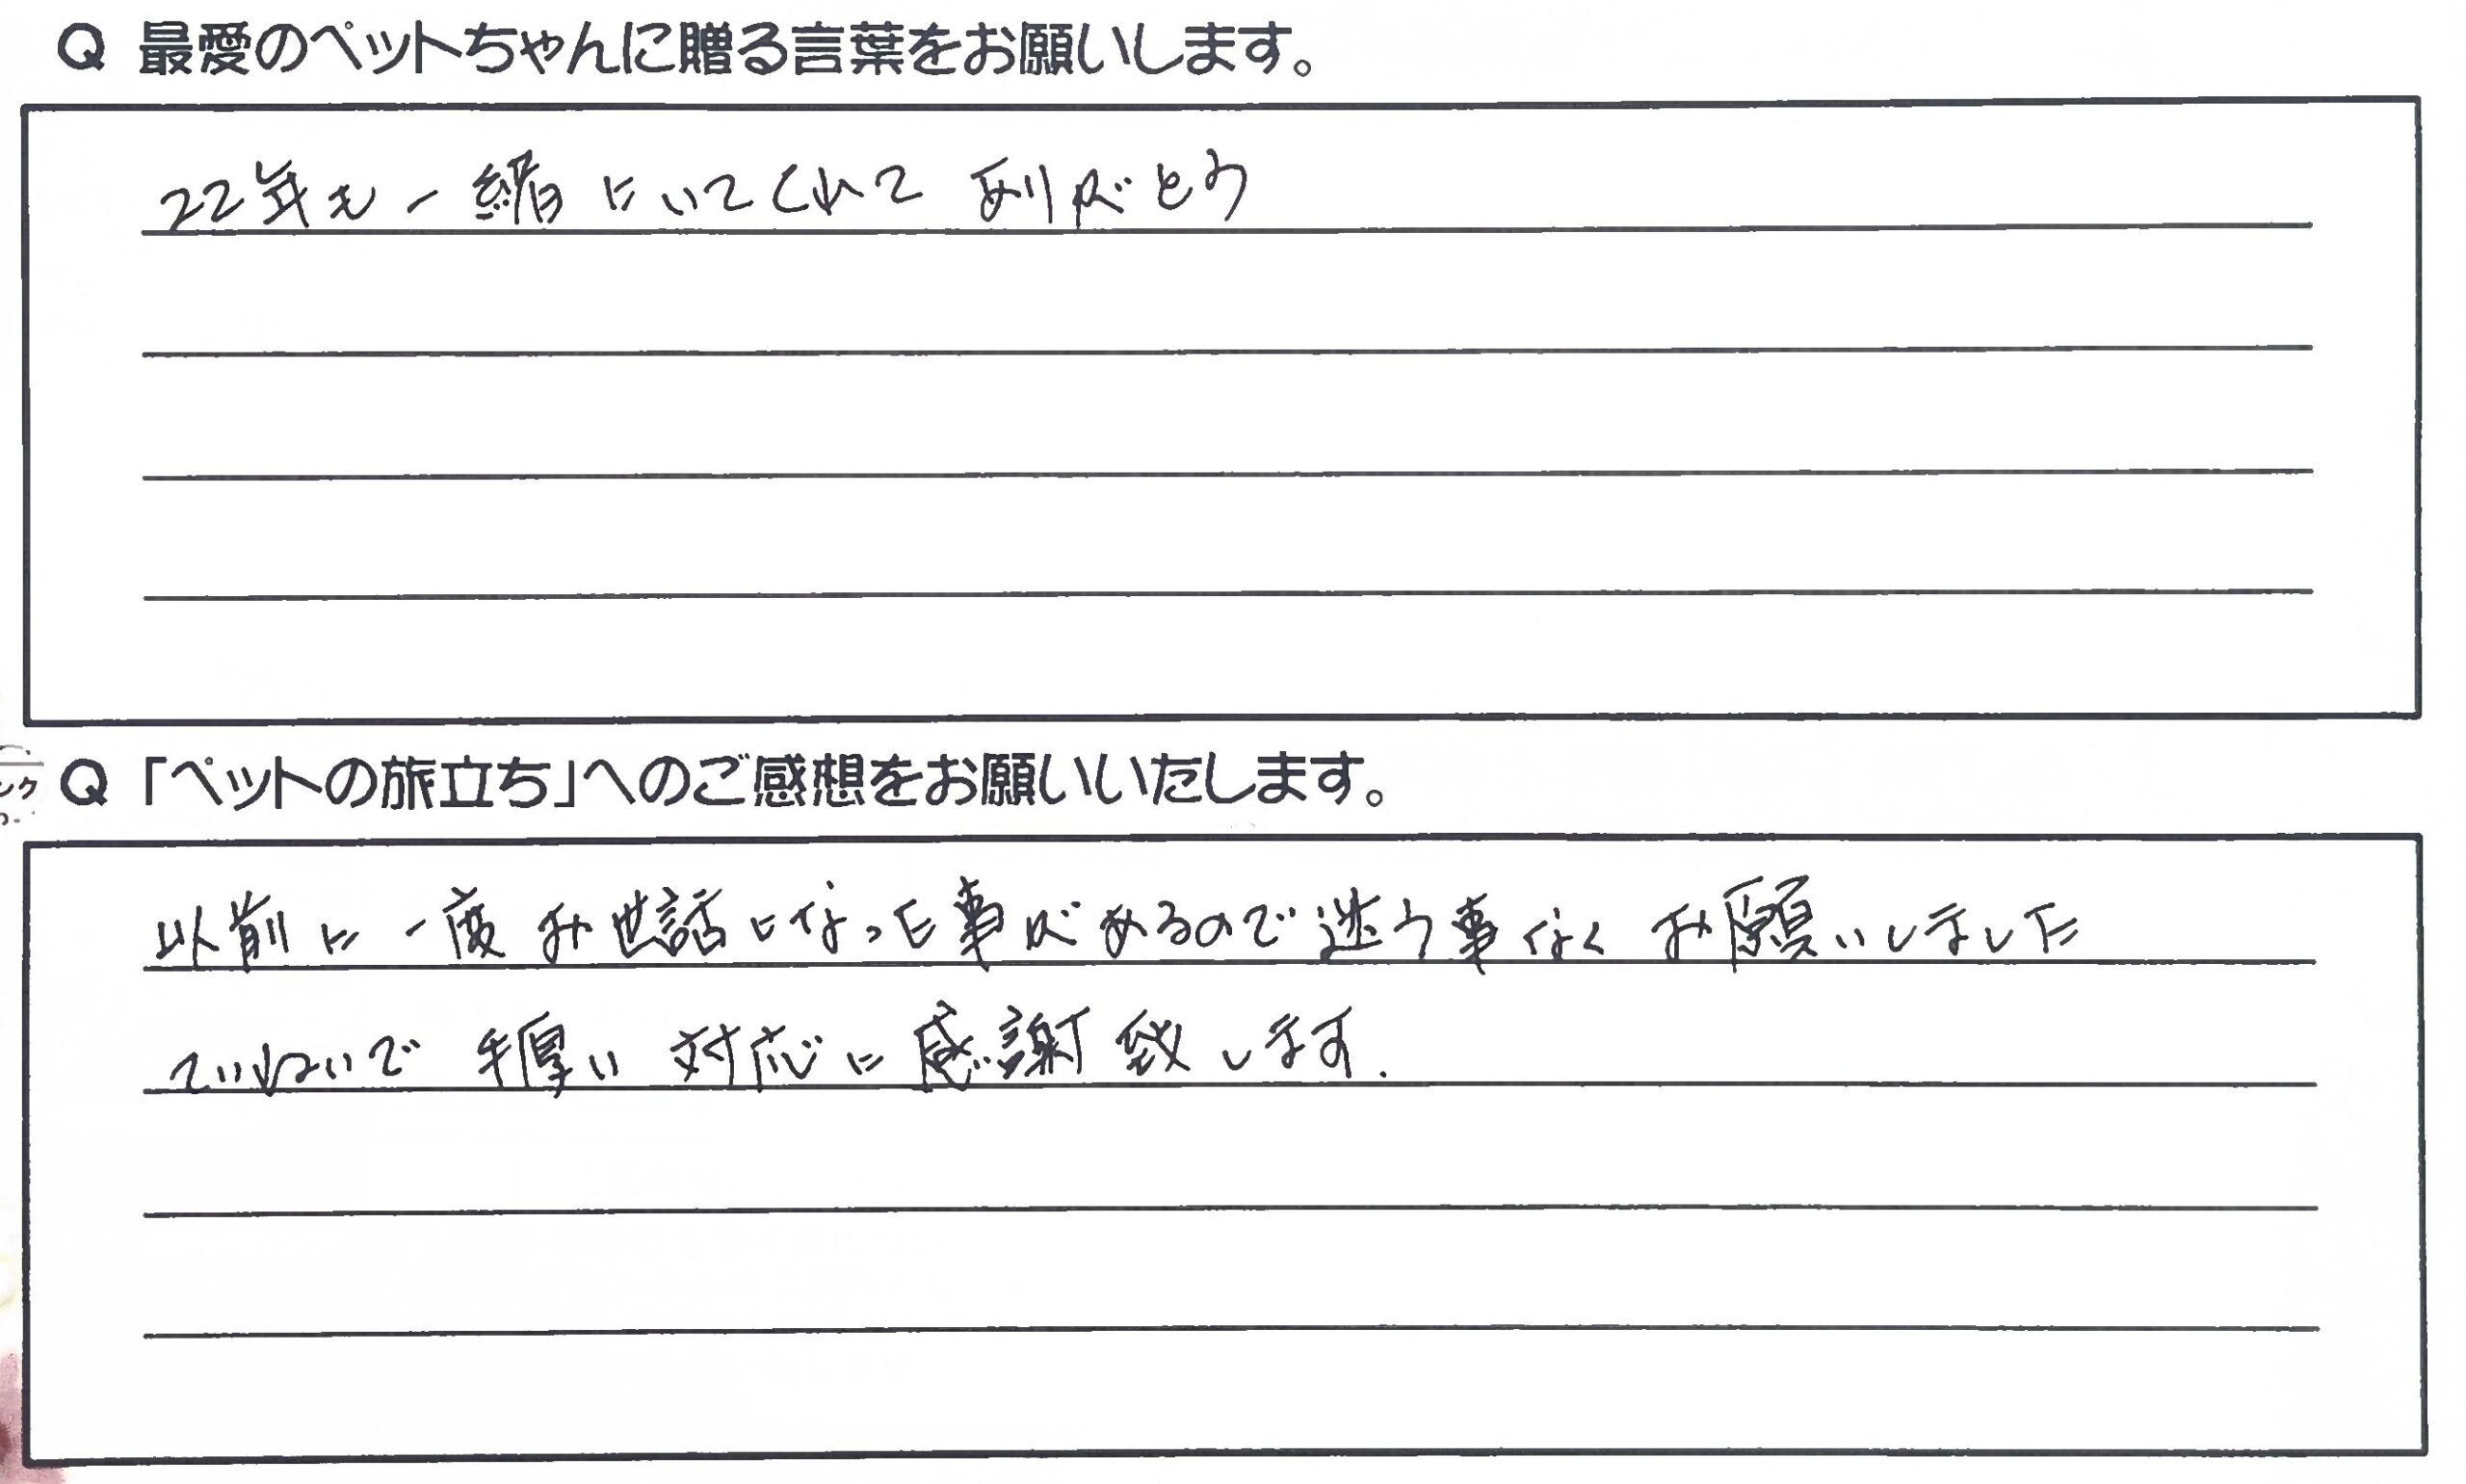 Q 最愛のペットちゃんに贈る言葉をお願いします。
22年も一緒にいてくれて ありがとう
Q 「ペットの旅立ち」へのご感想をお願いいたします。
以前に一度お世話になった事があるので迷う事なくお願いしました
ていねいで 手厚い 対応に感謝致します.